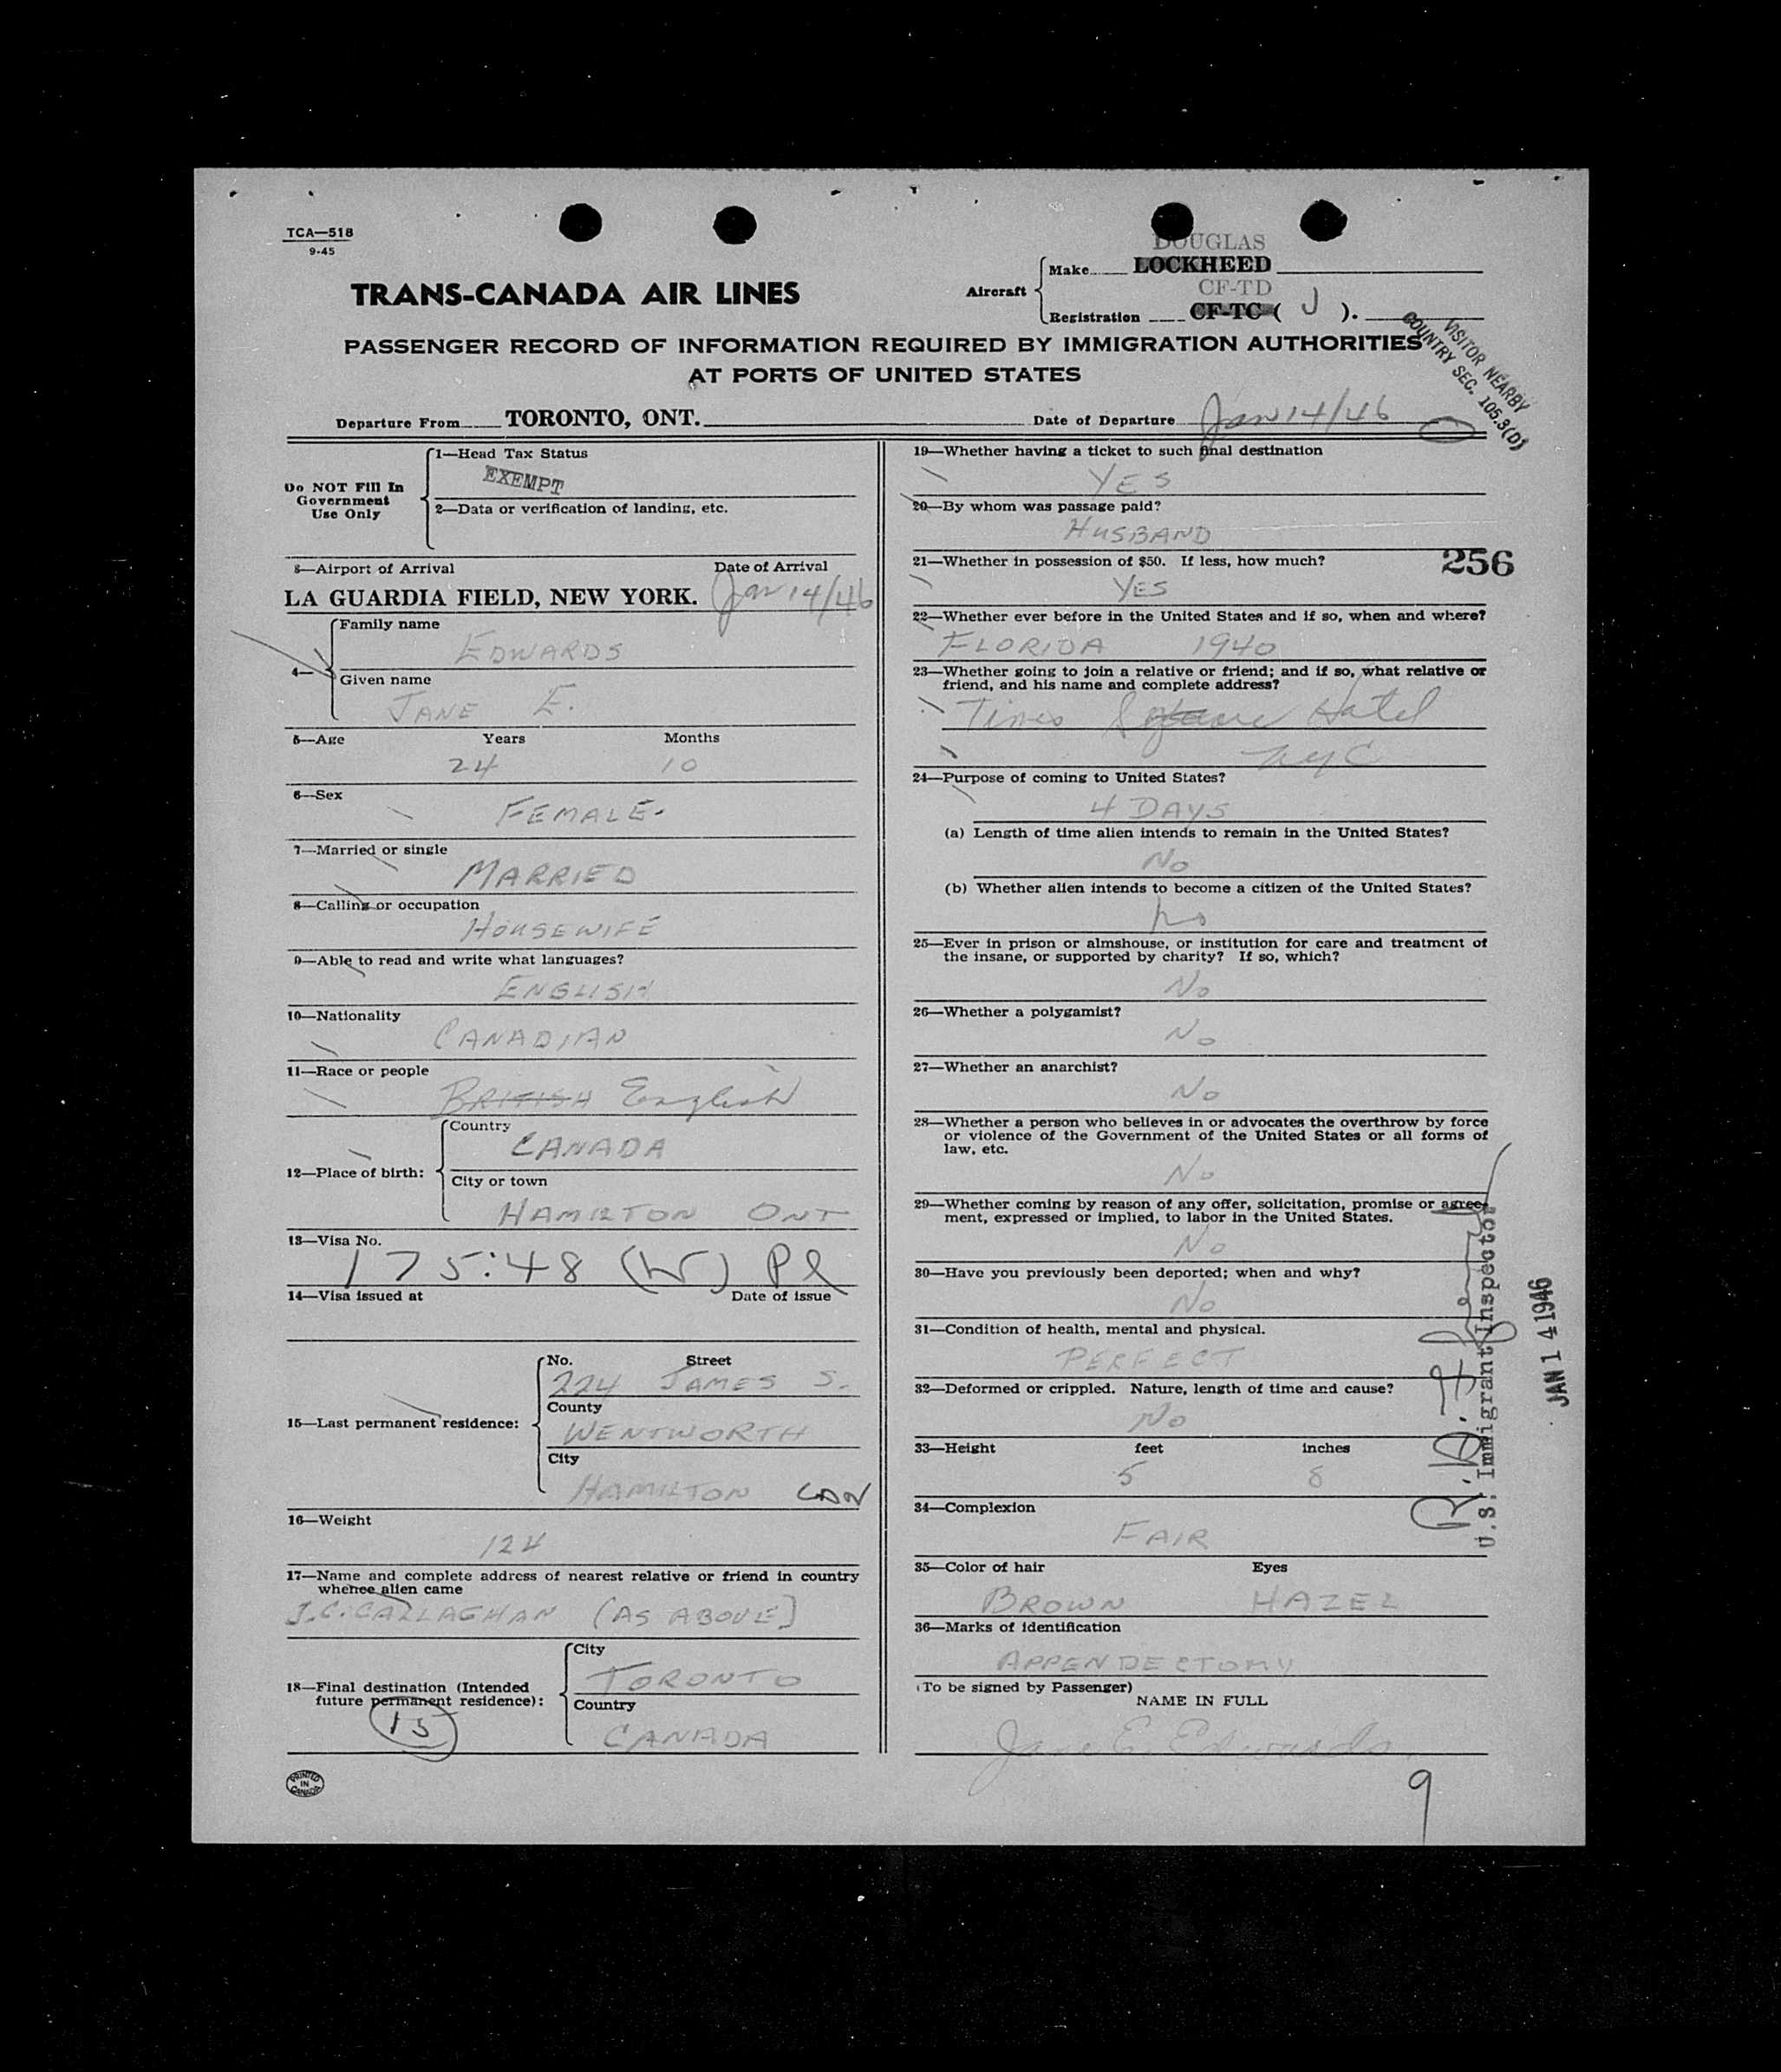 TCA—518
9-45
DOUGLAS
Aircraft
Make LOCKHEED
CF-TD
Registration CF-TC ( J ).
TRANS-CANADA AIR LINES
PASSENGER RECORD OF INFORMATION REQUIRED BY IMMIGRATION AUTHORITIES
AT PORTS OF UNITED STATES
VISITOR NEARBY
COUNTRY SEC. 105.3(D)
Departure From TORONTO, ONT.
Date of Departure Jan 14/46
Do NOT Fill In
Government
Use Only
1—Head Tax Status
EXEMPT
2—Data or verification of landing, etc.
3—Airport of Arrival Date of Arrival
LA GUARDIA FIELD, NEW YORK. Jan 14/46
4—
Family name
EDWARDS
Given name
JANE E.
5—Age Years Months
24 10
6—Sex
FEMALE.
7—Married or single
MARRIED
8—Calling or occupation
HOUSEWIFE
9—Able to read and write what languages?
ENGLISH
10—Nationality
CANADIAN
11—Race or people
BRITISH English
12—Place of birth:
Country
CANADA
City or town
HAMILTON ONT
13—Visa No.
175:48 (W) Pl
14—Visa issued at Date of issue
15—Last permanent residence:
No. Street
224 JAMES S.
County
WENTWORTH
City
HAMILTON CAN
16—Weight
124
17—Name and complete address of nearest relative or friend in country
whence alien came
J.C. CALLAGHAN (AS ABOVE)
18—Final destination (Intended
future permanent residence):
15
City
TORONTO
Country
CANADA
PRINTED
IN
CANADA
19—Whether having a ticket to such final destination
YES
20—By whom was passage paid?
HUSBAND
21—Whether in possession of $50. If less, how much?
256
YES
22—Whether ever before in the United States and if so, when and where?
FLORIDA 1940
23—Whether going to join a relative or friend; and if so, what relative or
friend, and his name and complete address?
Times Square Hotel
NYC
24—Purpose of coming to United States?
4 DAYS
(a) Length of time alien intends to remain in the United States?
No
(b) Whether alien intends to become a citizen of the United States?
no
25—Ever in prison or almshouse, or institution for care and treatment of
the insane, or supported by charity? If so, which?
No
26—Whether a polygamist?
No
27—Whether an anarchist?
No
28—Whether a person who believes in or advocates the overthrow by force
or violence of the Government of the United States or all forms of
law, etc.
No
29—Whether coming by reason of any offer, solicitation, promise or agree-
ment, expressed or implied, to labor in the United States.
No
30—Have you previously been deported; when and why?
No
31—Condition of health, mental and physical.
PERFECT
32—Deformed or crippled. Nature, length of time and cause?
No
33—Height feet inches
5 8
34—Complexion
FAIR
35—Color of hair Eyes
BROWN HAZEL
36—Marks of identification
APPENDECTOMY
(To be signed by Passenger)
NAME IN FULL
Jane E. Edwards.
9
U.S. Immigrant Inspector
JAN 14 1946